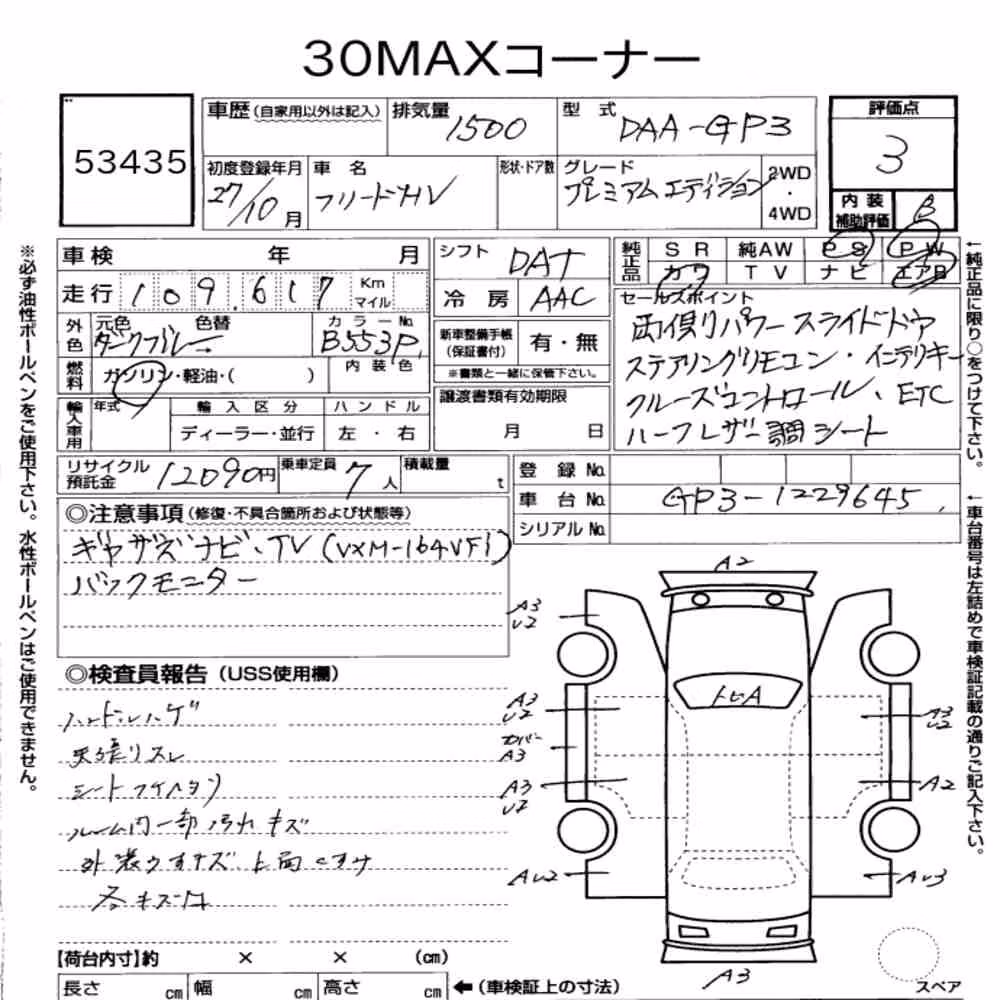 30MAXコーナー
53435
車歴(自家用以外は記入)
排気量
1500
型 式
DAA-GP3
評価点
3
初度登録年月
27/10月
車 名
フリードHV
形状・ドア数
グレード
プレミアムエディション
2WD
・
4WD
内 装
補助評価
B
※必ず油性ボールペンをご使用下さい。水性ボールペンはご使用できません。
車検 年 月
走行 109,617 Km
マイル
外色
元色 色替
ダークブルー→
カラーNo.
B553P
燃料
ガソリン・軽油・( )
内 装 色
輸入車用
年式
輸 入 区 分
ディーラー・並行
ハ ン ド ル
左 ・ 右
シフト
DAT
冷 房
AAC
新車整備手帳
(保証書付)
有・無
※書類と一緒に保管下さい。
譲渡書類有効期限
月 日
純正品
S R 純AW P S P W
カワ T V ナビ エアB
セールスポイント
両側パワースライドドア
ステアリングリモコン・インテリキー
クルーズコントロール、ETC
ハーフレザー調シート
←純正品に限り○をつけて下さい。
リサイクル
預託金
12090円
乗車定員
7人
積載量
t
登 録 No.
車 台 No.
GP3-1229645
シリアル No.
←車台番号は左詰めで車検証記載の通りご記入下さい。
◎注意事項(修復・不具合箇所および状態等)
ギャザズナビ・TV(VXM-164VFi)
バックモニター
◎検査員報告(USS使用欄)
ハンドルハゲ
天張リスレ
シート
ルーム内一部汚れキズ
外装ウすキズ 上面くすけ
各キズ凹
A2
A3
U2
トビA
A3
U2
カバー
A3
A3
U2
AU2
A3
U2
A2
AU3
A3
スペア
【荷台内寸】約 × × (cm)
長さ cm 幅 cm 高さ cm ←(車検証上の寸法)